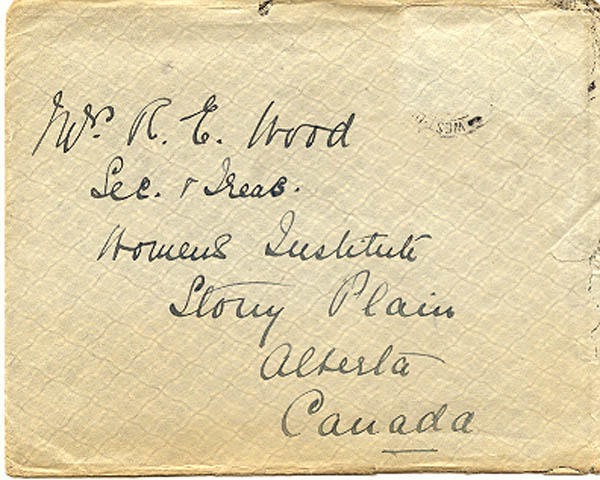 Mrs. R. E. Wood
Sec. & Treas.
Womens Institute
Stony Plain
Alberta
Canada